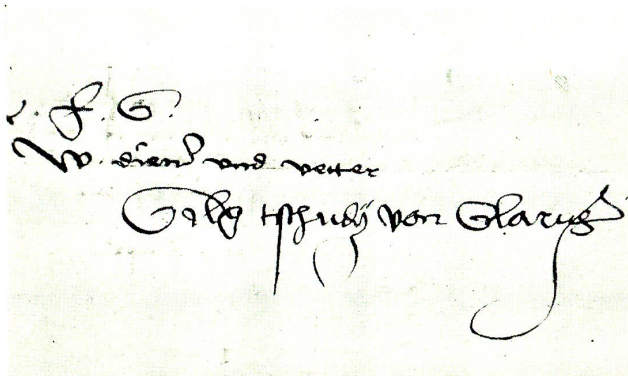 E. F. G.
W. diener und vetter
Gilg tschudij von Glarus